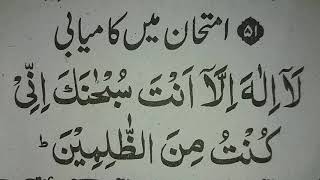 ۵۱ امتحان میں کامیابی
لَاۤ اِلٰهَ اِلَّاۤ اَنْتَ سُبْحٰنَكَ اِنِّیْ
كُنْتُ مِنَ الظّٰلِمِیْنَ ؕ